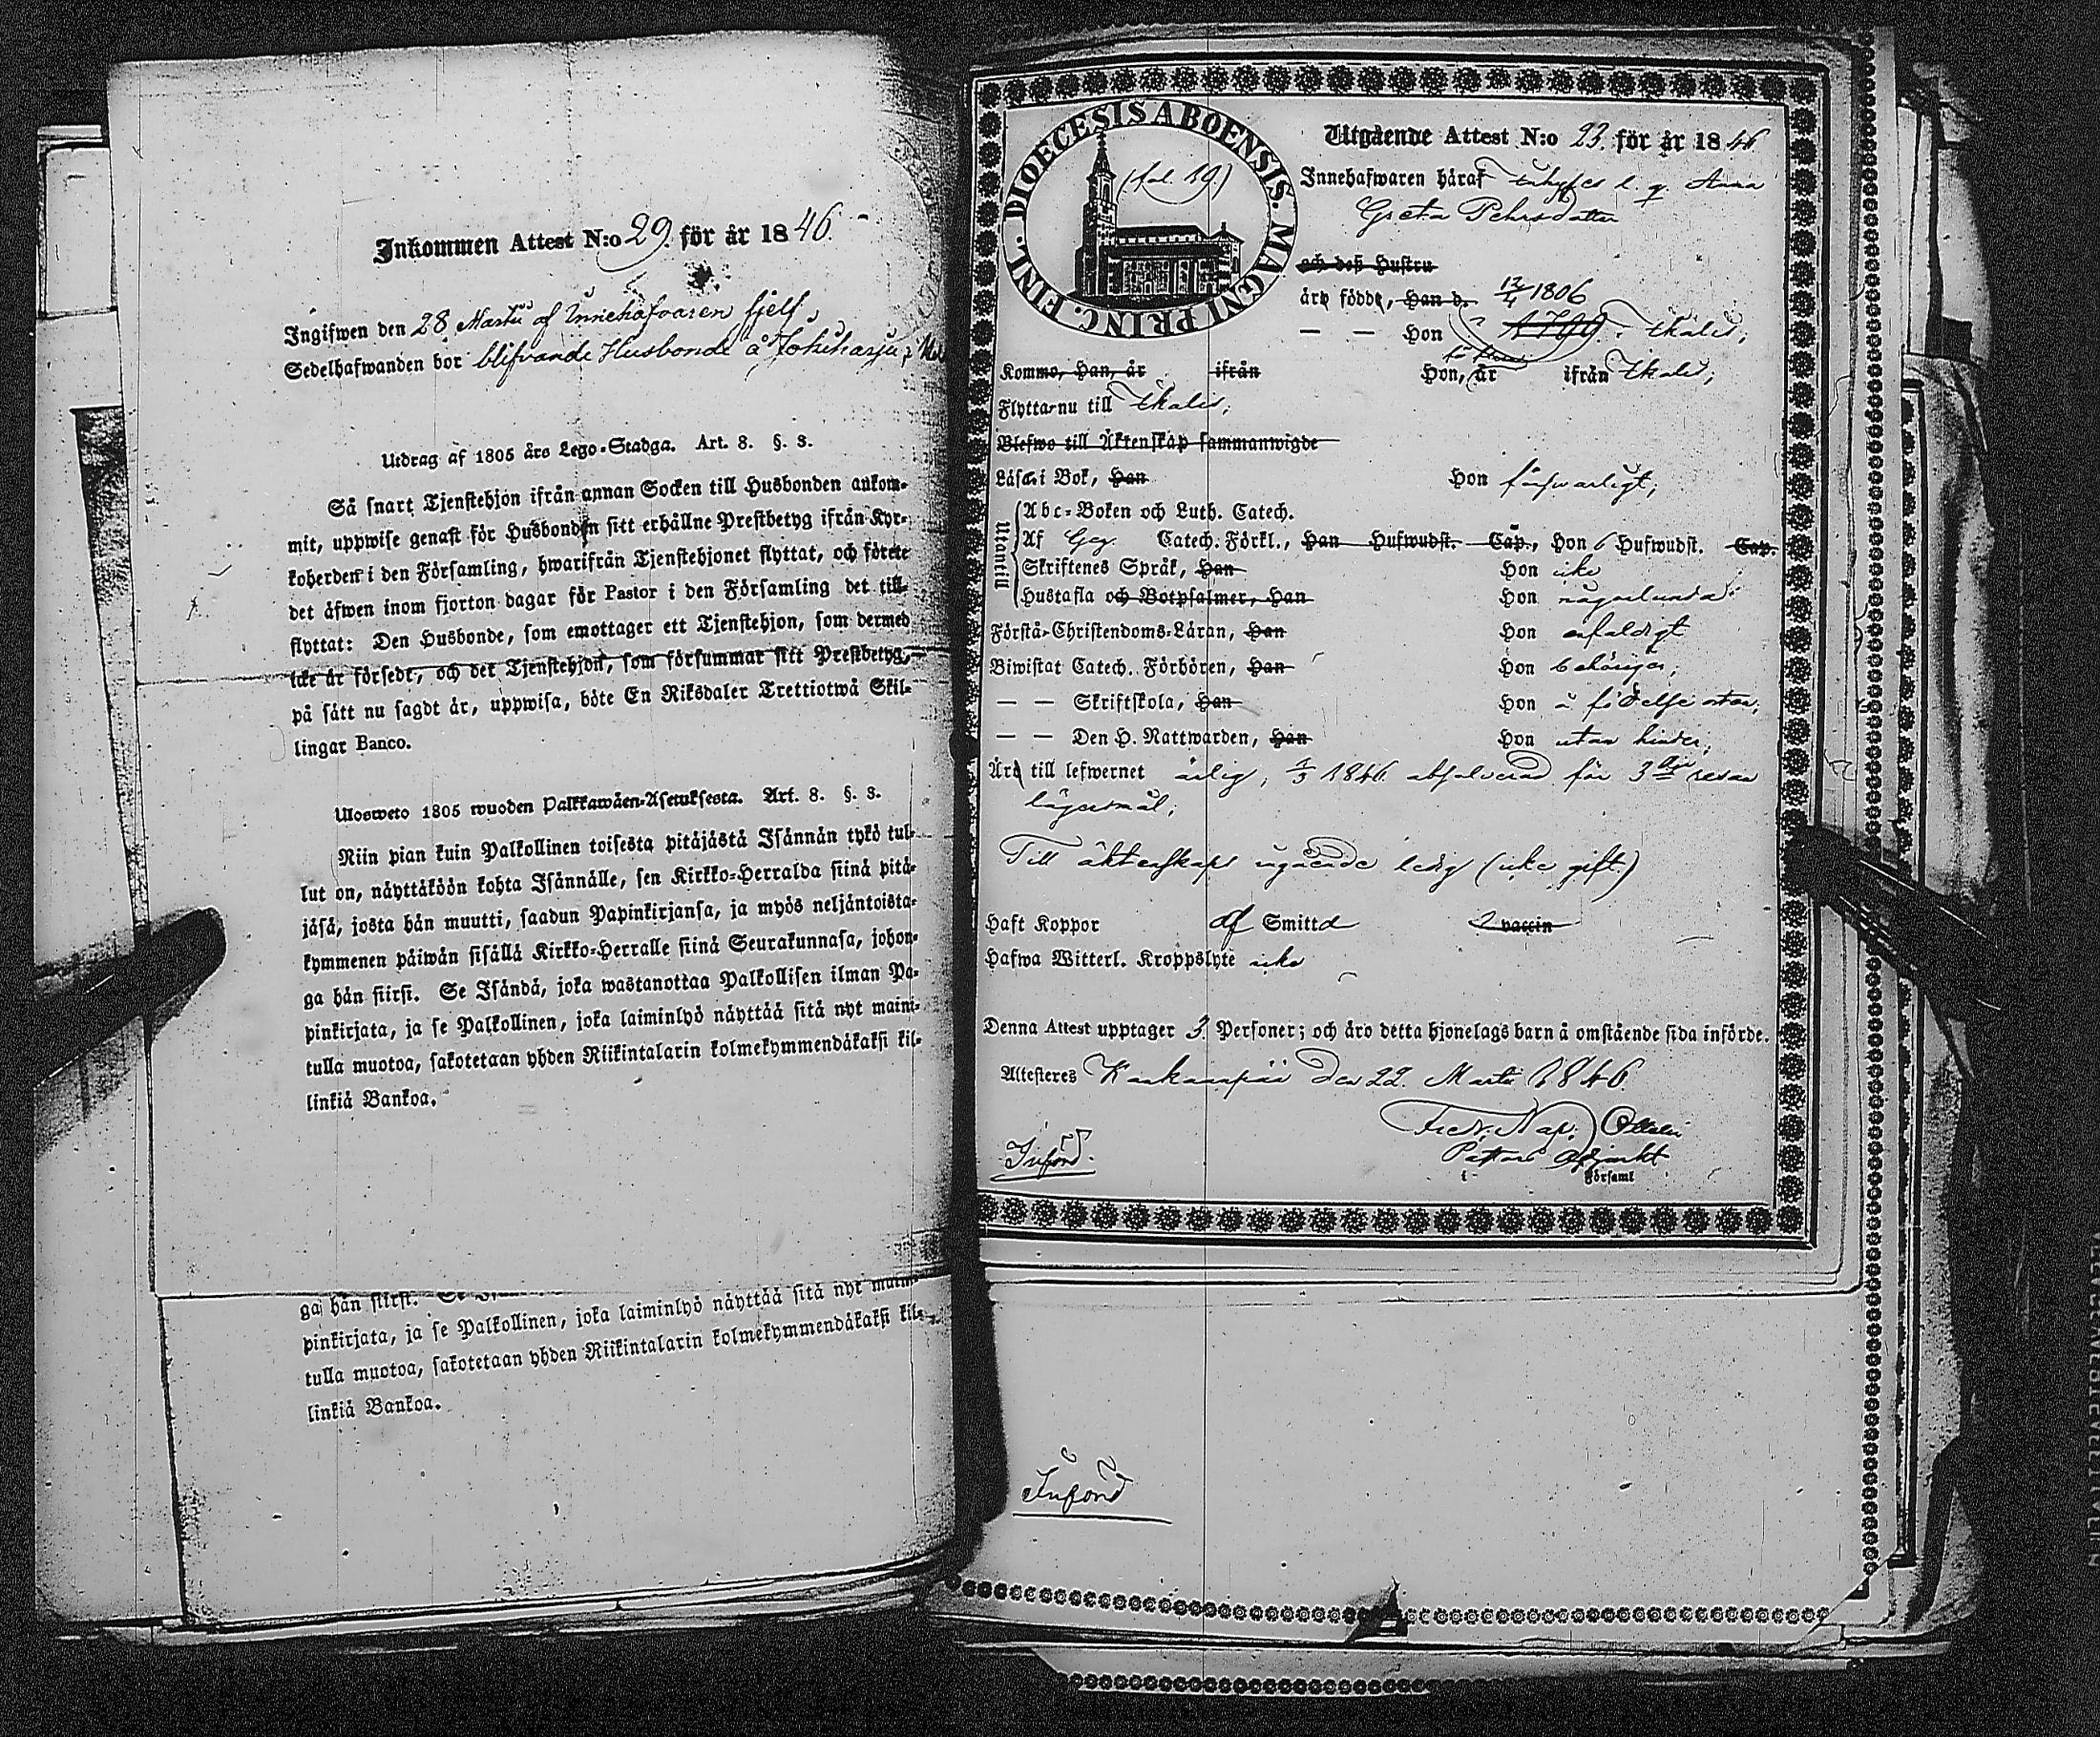 Inkommen Attest N:o 29. för år 1846.
Ingifwen den 28 Martii af Innehafvaren sjelf
Sedelhafwanden bor blifvande Husbonde å Jokiharju,
Utdrag af 1805 års Lego-Stadga. Art. 8. §. 3.
Så snart Tjenstehjon ifrån annan Socken till Husbonden ankom-
mit, uppwise genast för Husbonden sitt erhållne Prestbetyg ifrån Kyr-
koherden i den Församling, hwarifrån Tjenstehjonet flyttat, och förete
det äfwen inom fjorton dagar för Pastor i den Församling det till-
flyttat: Den Husbonde, som emottager ett Tjenstehjon, som dermed
icke är försedt, och det Tjenstehjon, som försummar sitt Prestbetyg,
på sätt nu sagdt är, uppwisa, böte En Riksdaler Trettiotwå Skil-
lingar Banco.
Ulosweto 1805 wuoden Palkkawäen-Asetuksesta. Art. 8. §. 3.
Niin pian kuin Palkollinen toisesta pitäjästä Isännän tykö tul-
lut on, näyttäköön kohta Isännälle, sen Kirkko-Herralda siinä pitä-
jäsä, josta hän muutti, saadun Papinkirjansa, ja myös neljäntoista-
kymmenen päiwän sisällä Kirkko-Herralle siinä Seurakunnasa, johon-
ga hän siirsi. Se Isändä, joka wastanottaa Palkollisen ilman Pa-
pinkirjata, ja se Palkollinen, joka laiminlyö näyttää sitä nyt maini-
tulla muotoa, sakotetaan yhden Riikintalarin kolmekymmendäkaksi kil-
linkiä Bankoa.
ga hän siirsi.
pinkirjata, ja se Palkollinen, joka laiminlyö näyttää sitä nyt maini-
tulla muotoa, sakotetaan yhden Riikintalarin kolmekymmendäkaksi kil-
linkiä Bankoa.
DIOECESIS ABOENSIS. MAGNI PRINC. FINL.
(fol. 19.)
Utgående Attest N:o 23. för år 1846
Innehafwaren häraf Anna
Greta Pehrsdotter
och deß Hustru
äro födde, Han d. 1806
— — Hon Ikalis;
Komme, Han, år ifrån Hon, år ifrån Ikalis;
Flyttar nu till Ikalis;
Blefwo till Äktenskap sammanwigde
Läsa i Bok, Han Hon förswarligt;
Utantill
Abc-Boken och Luth. Catech.
Af Catech. Förkl., Han Hufwudst. Cap., Hon 6 Hufwudst. Cap.
Skriftenes Språk, Han Hon icke
Hustafla och Botpsalmer, Han Hon någorlunda
Förstå Christendoms-Läran, Han Hon enfaldigt
Biwistat Catech. Förhören, Han Hon behörigen;
— — Skriftskola, Han Hon å födelse orten;
— — Den H. Nattwarden, Han Hon utan hinder;
Äro till lefwernet ärlig, 1846 absolverad för 3 resan
lägersmål;
Till äktenskaps ingående ledig (icke gift.)
Haft Koppor af Smitta vaccin
Hafwa Witterl. Kroppslyte icke
Denna Attest upptager 3 Personer; och äro detta hjonelags barn å omstående sida införde.
Attesteres Kankaanpää den 22. Martii 1846.
Pastors Adjunkt
i Församl
Införd.
Införd